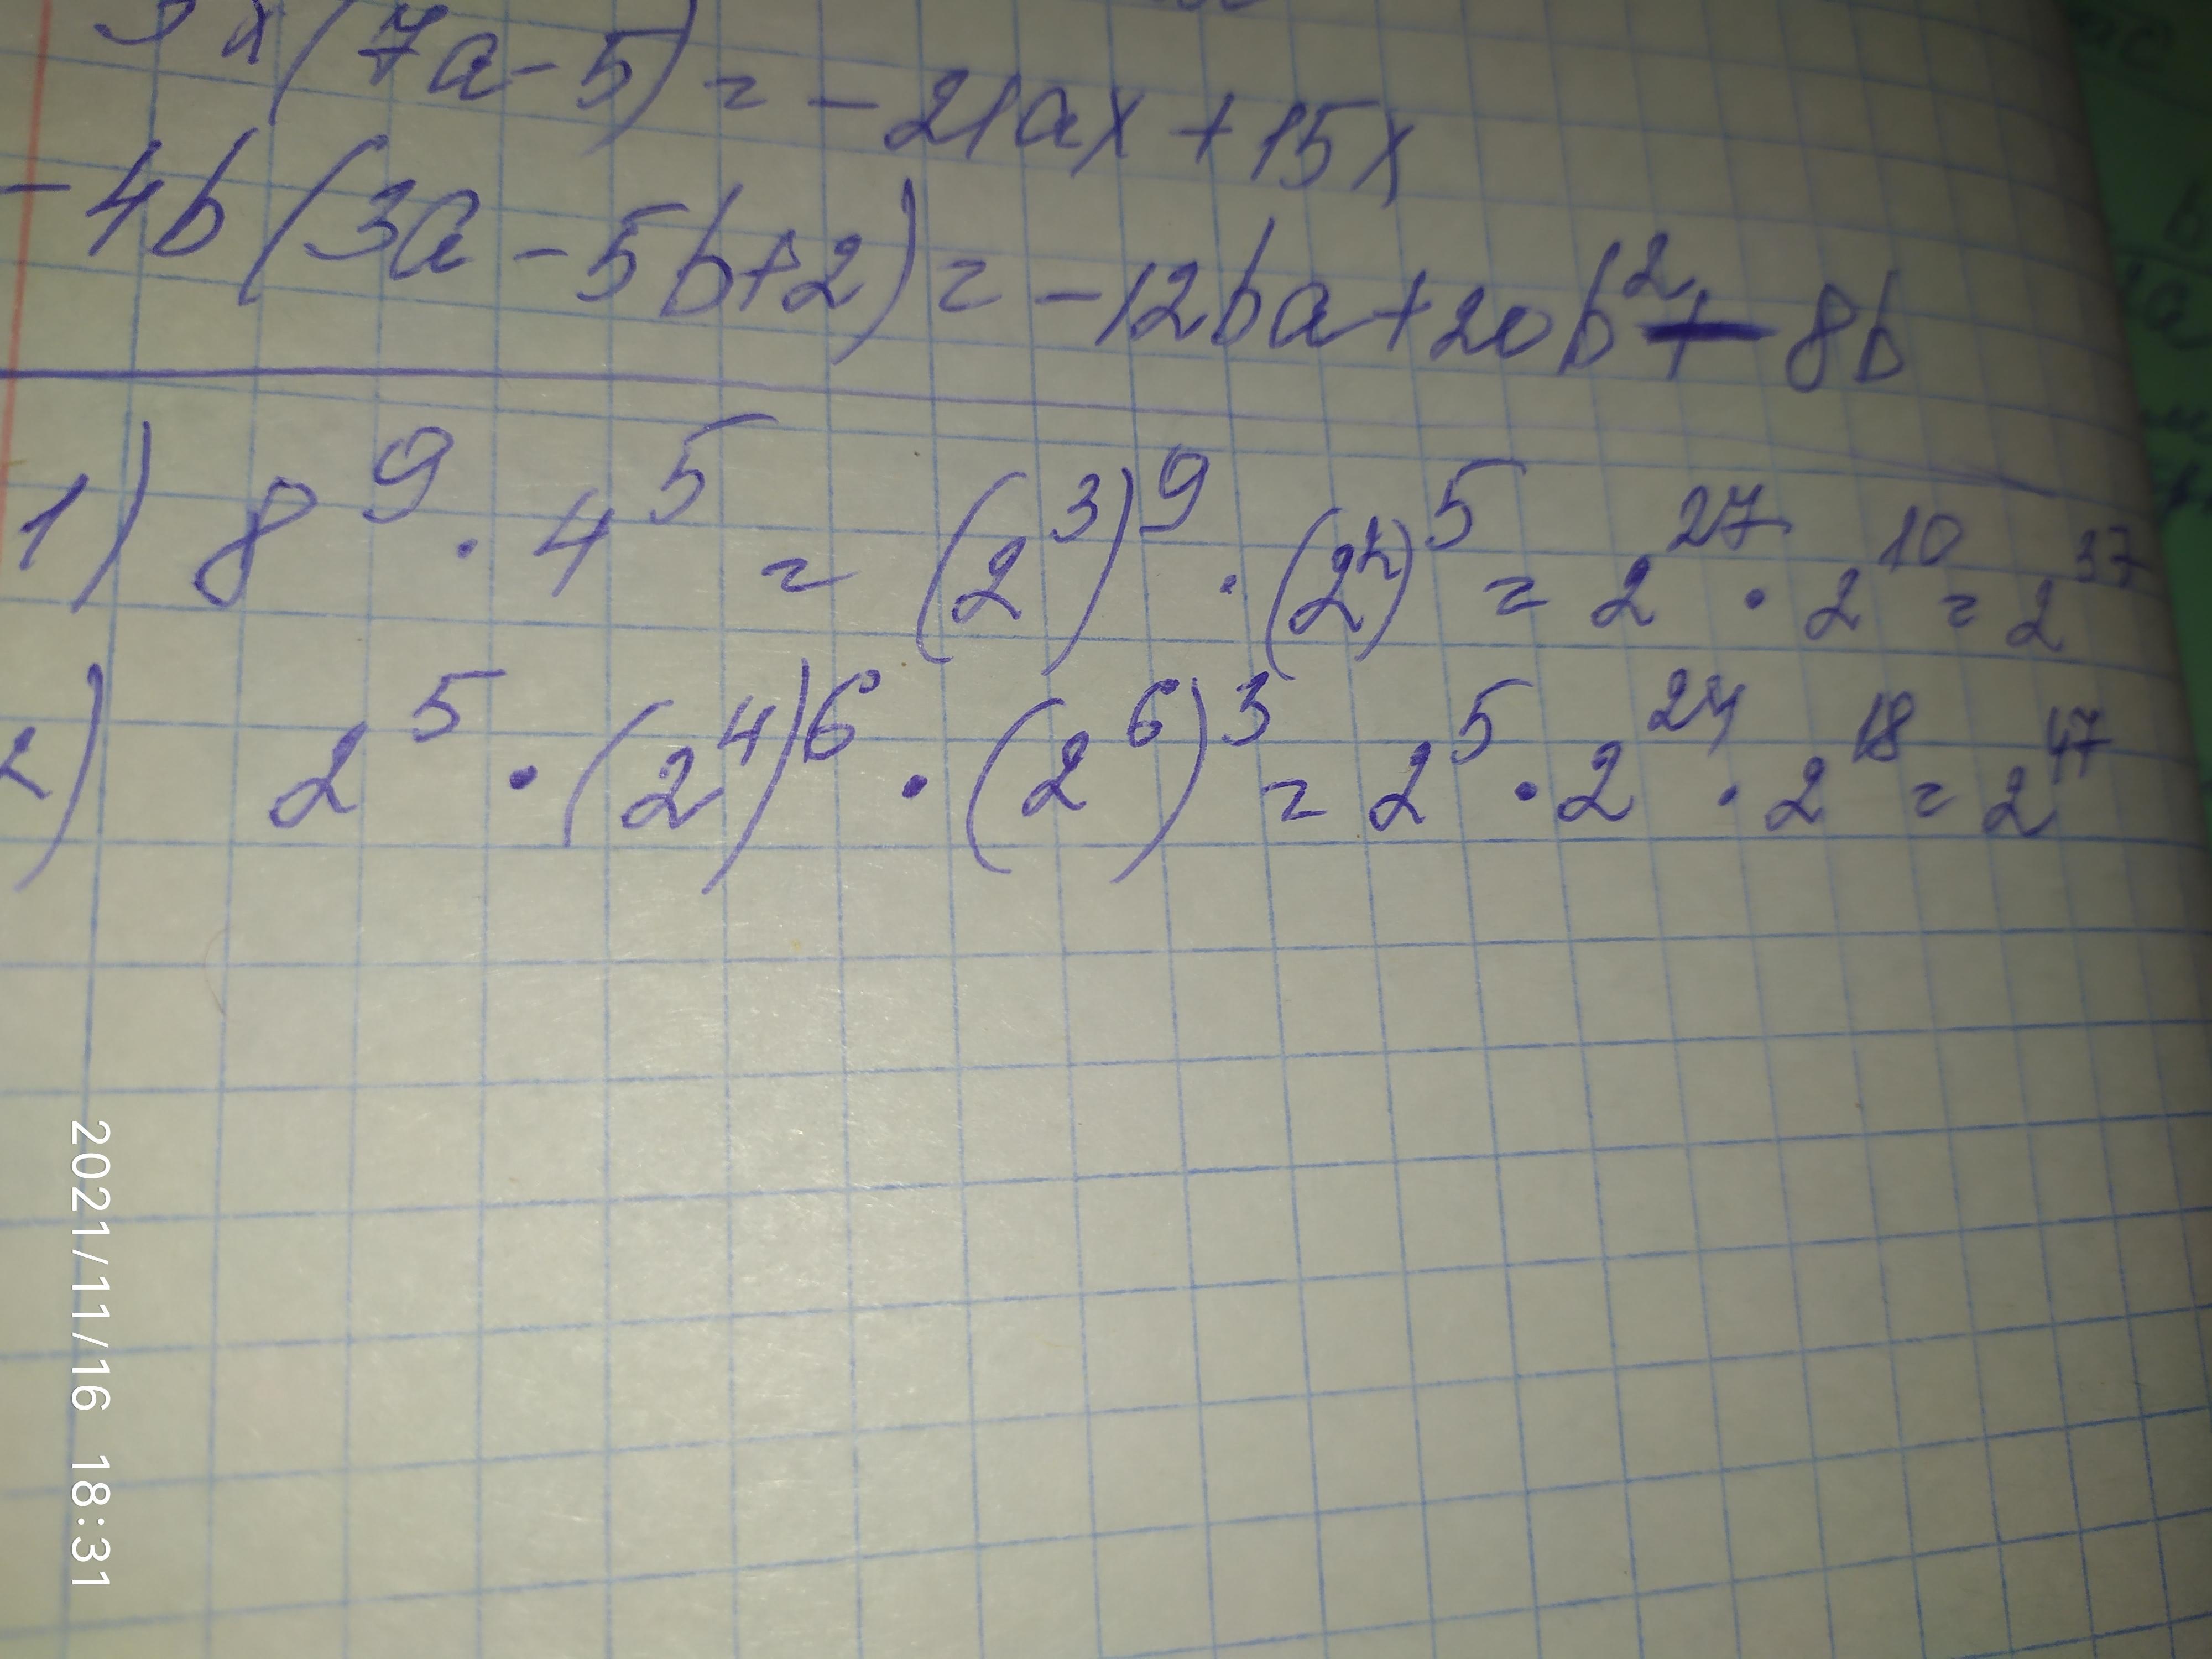 3x(7a-5) = -21ax+15x
-4b(3a-5b+2) = -12ba+20b²-8b
1) 8⁹·4⁵ = (2³)⁹·(2²)⁵ = 2²⁷·2¹⁰ = 2³⁷
2) 2⁵·(2⁴)⁶·(2⁶)³ = 2⁵·2²⁴·2¹⁸ = 2⁴⁷
2021/11/16 18:31